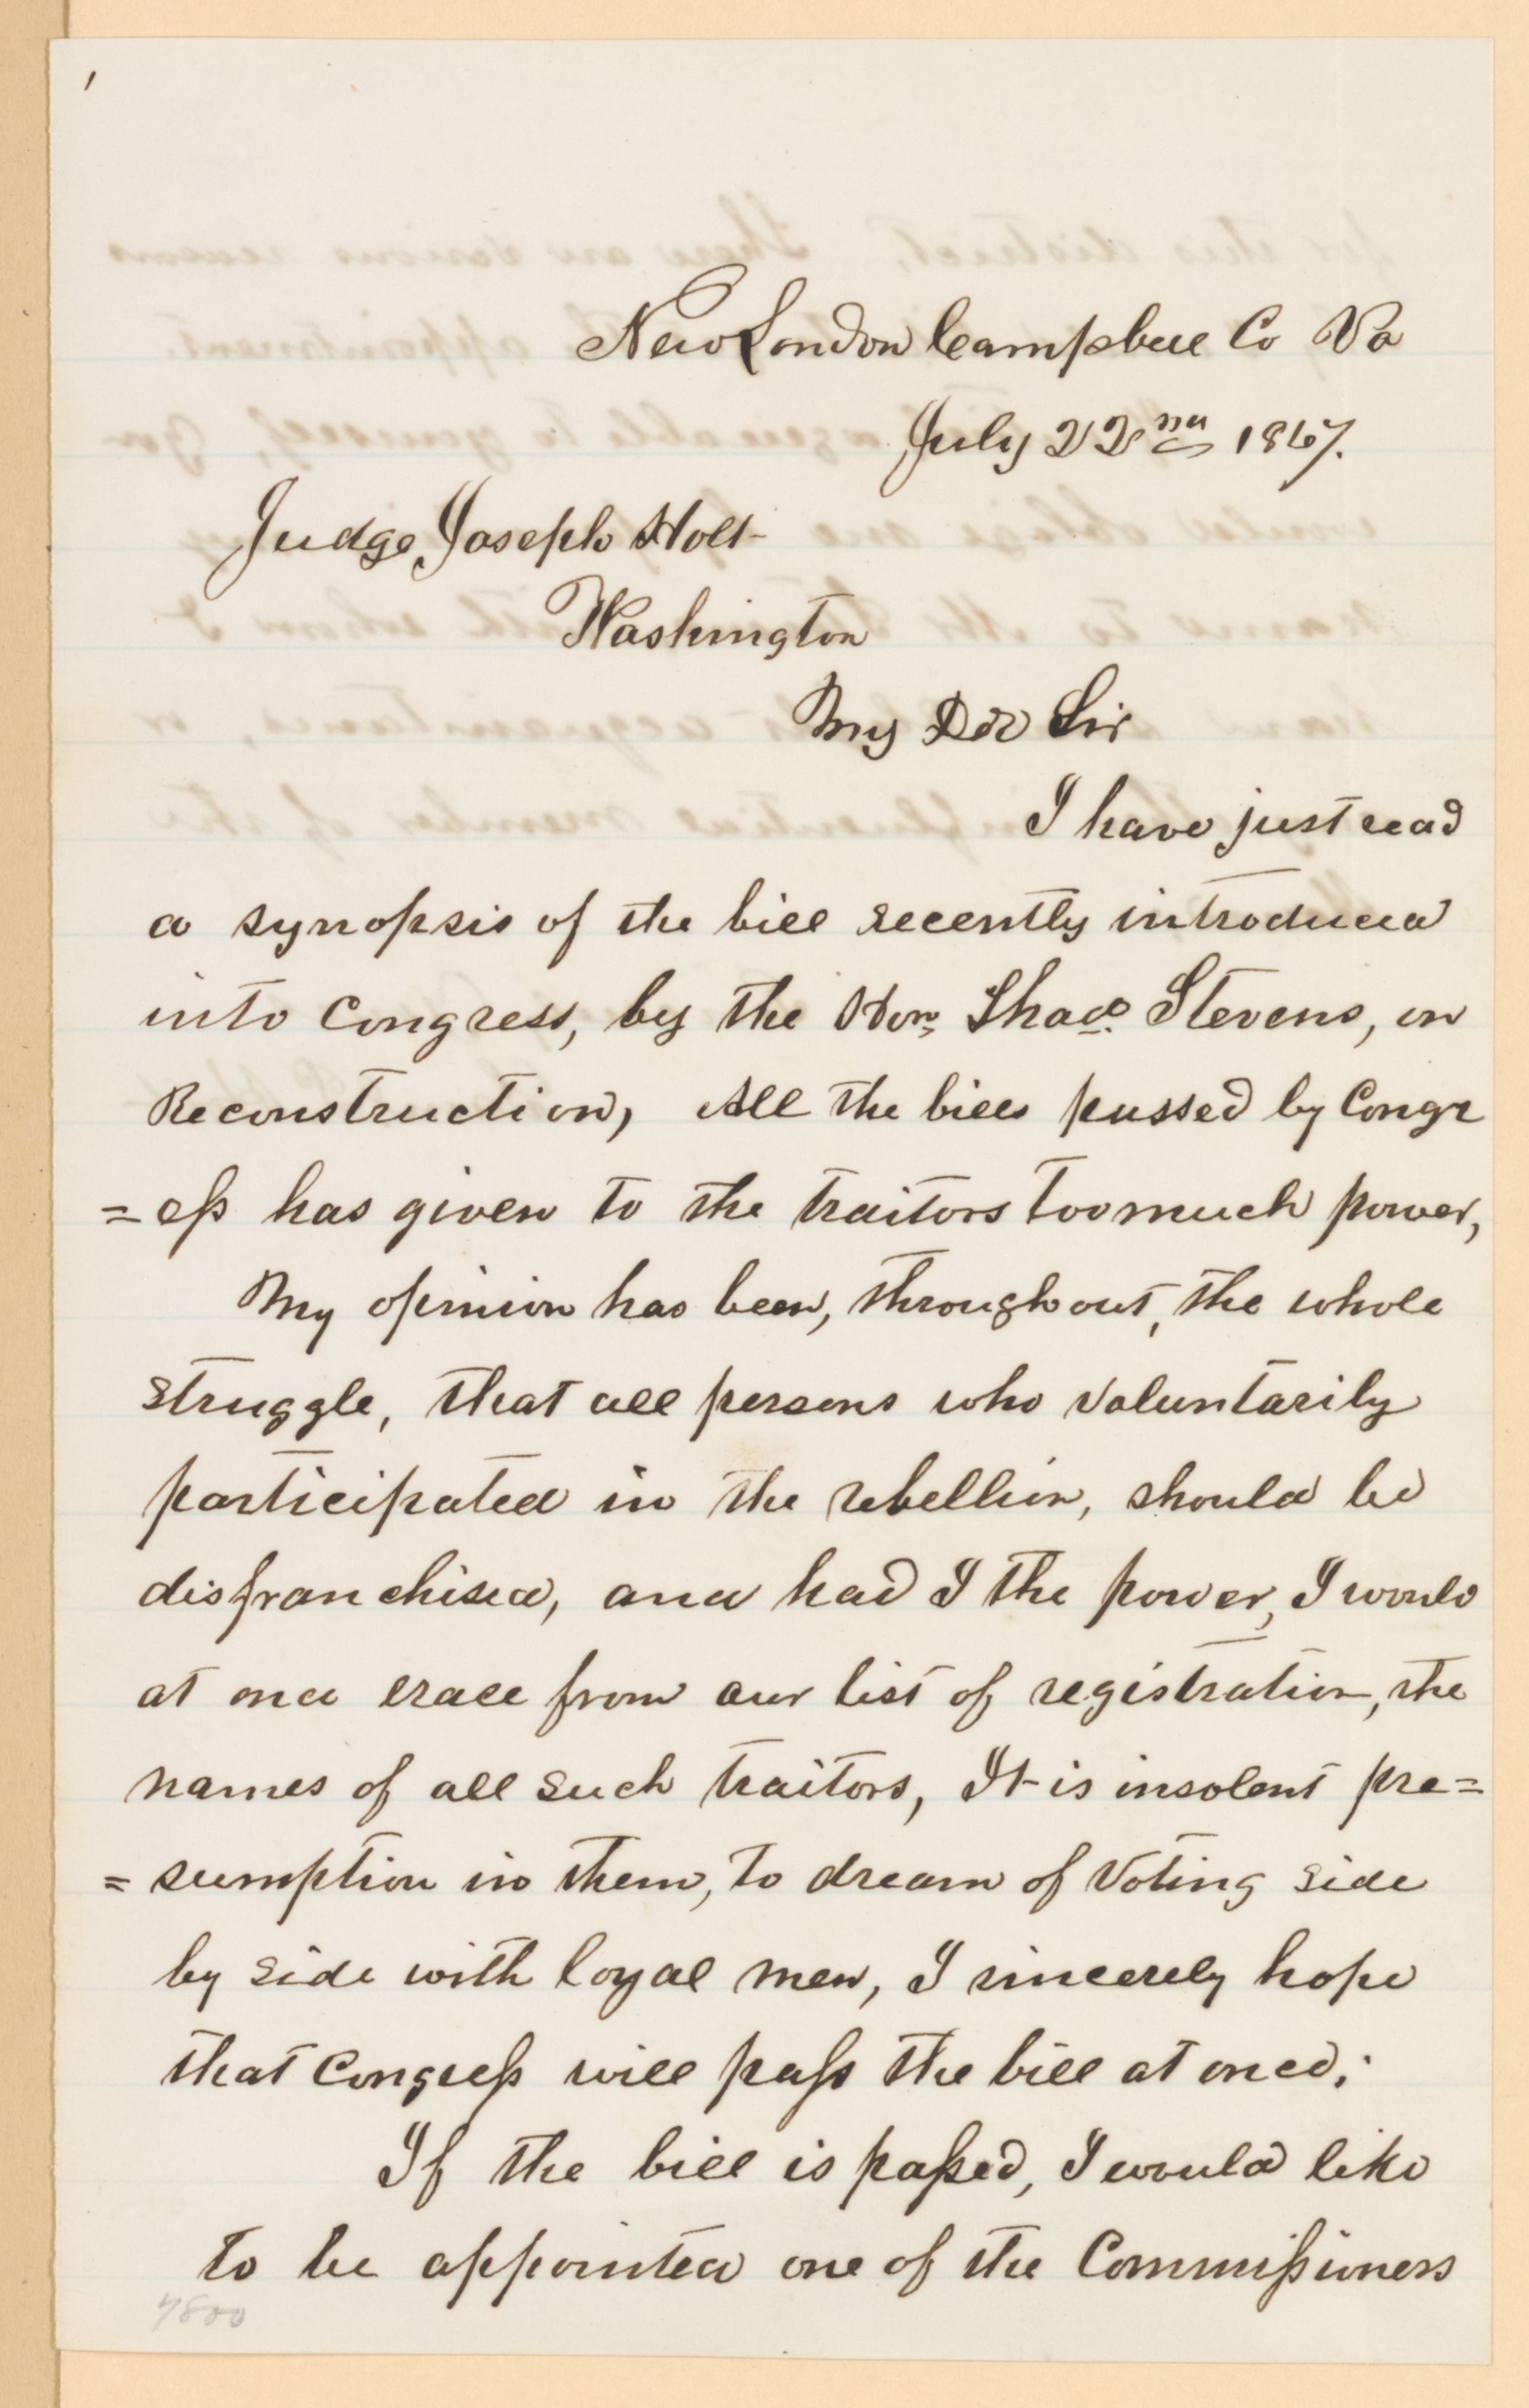 New London Campbell Co Va
July 22nd 1867.
Judge Joseph Holt
Washington
My Dr Sir
I have just read
a synopsis of the bill recently introduced
into Congress, by the Hon. Thads. Stevens, on
Reconstruction, All the bills passed by Congr
=ess has given to the traitors too much power,
My opinion has been, throughout, the whole
struggle, that all persons who voluntarily
participated in the rebellion, should be
disfranchised, and had I the power, I would
at once erace from our list of registration, the
names of all such traitors, It is insolent pre=
=sumption in them, to dream of voting side
by side with loyal men, I sincerely hope
that Congress will pass the bill at once;
If the bill is passed, I would like
to be appointed one of the Commissioners
7800